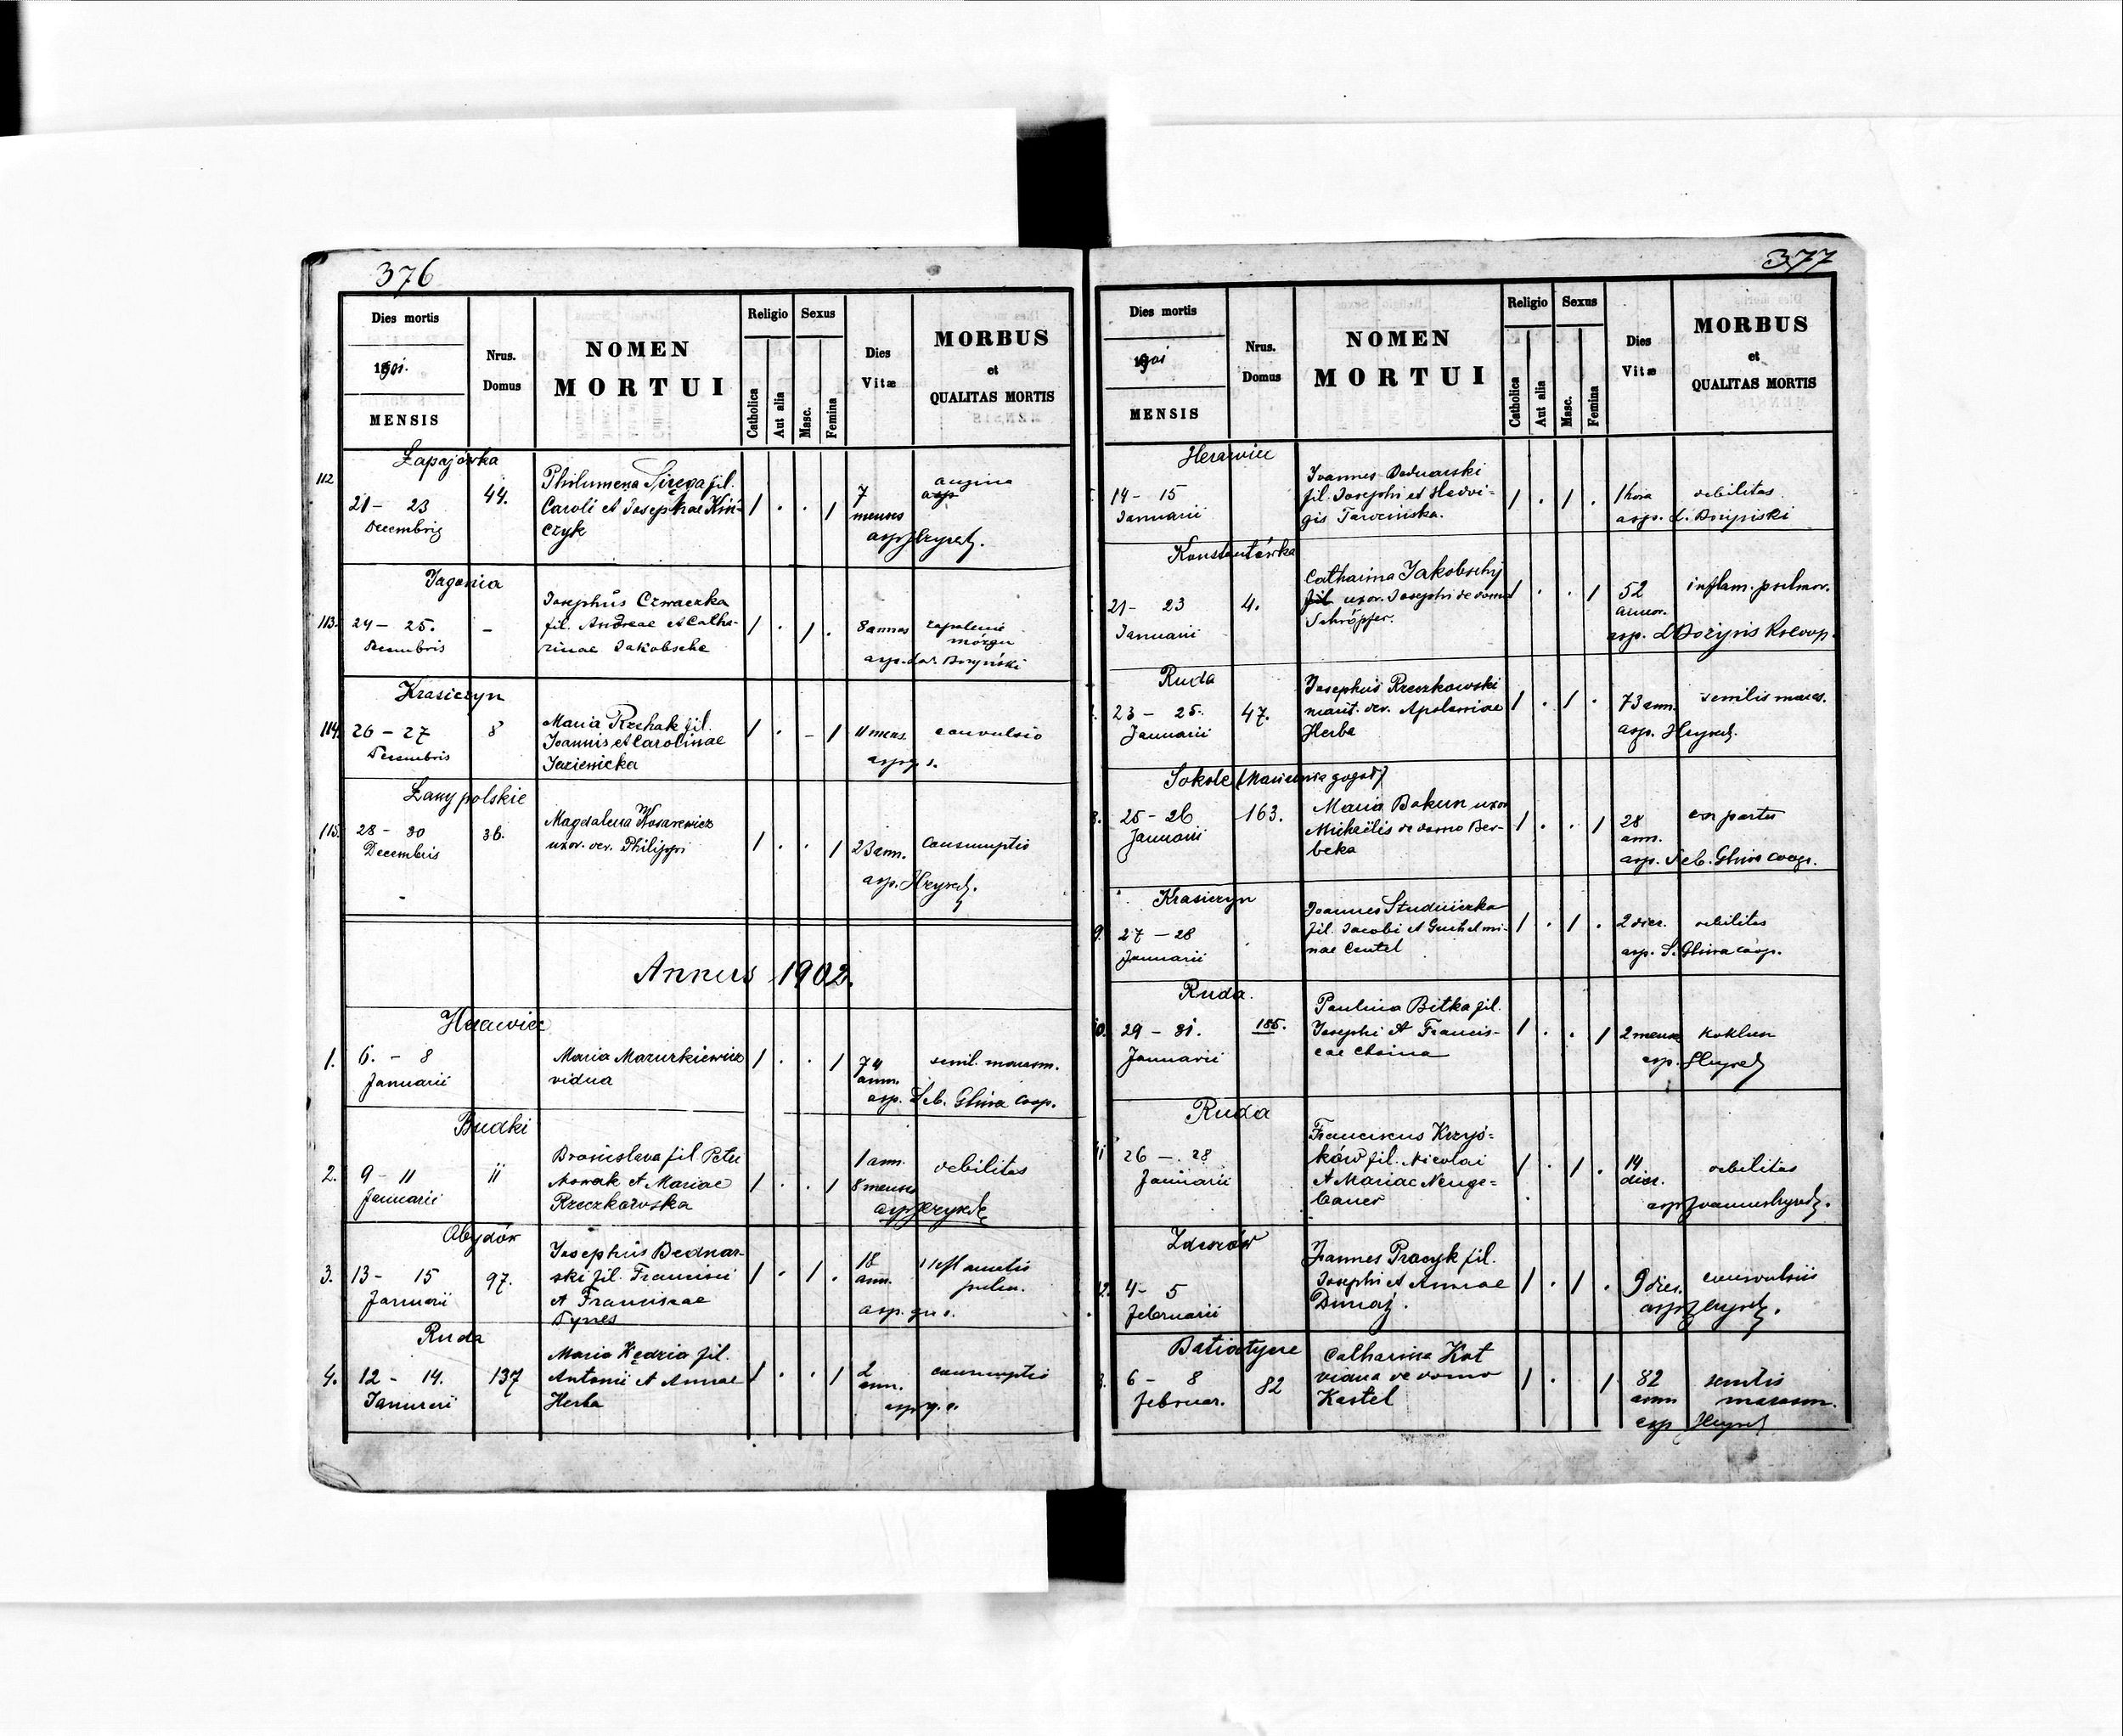 376
Dies mortis
1901.
MENSIS
Nrus.
Domus
NOMEN
MORTUI
Religio
Catholica
Aut alia
Sexus
Masc.
Femina
Dies
Vitæ
MORBUS
et
QUALITAS MORTIS
Łapajówka
112
21 - 23
Decembris
44.
Philumena
fil.
Caroli et Josephae Kin-
czyk
1 . . 1
7
menses
angina
asp. Hryseth.
Jagonia
113.
24 - 25.
Decembris
-
Josephus Czwaczka
fil. Andreae et Catha-
rinae Jakobsche
1 . 1 .
8 annos
zapalenie
mózgu
Krasiczyn
114.
26 - 27
Decembris
8
Maria Rzehak fil.
Joannis et Carolinae
1 . - 1
11 mens.
convulsio
Łany polskie
115.
28 - 30
Decembris
36.
Magdalena Kosarewicz
uxor. der. Philippi
1 . . 1
23 ann.
consumptio
asp. Hryseth.
Annus 1902.
Herawiec
1.
6. - 8
Januarii
Maria Mazurkiewicz
vidua
1 . . 1
74
ann.
senil. marasm.
asp. Seb. Gliwa coop.
Budki
2.
9 - 11
Januarii
11
Bronislava fil. Petri
Nowak et Mariae
Rzeczkowska
1 . . 1
1 ann.
8 menses
debilitas
Obydów
3.
13 - 15
Januarii
97.
Josephus Bednar-
ski fil. Francisci
et Franciscae
Tynes
1 . 1 .
18
ann.
pulm.
asp.
Ruda
4.
12 - 14.
Januarii
137
Maria Kędzia fil.
Antonii et Annae
Herba
1 . . 1
2
ann.
consumptio
377
Dies mortis
1901
MENSIS
Nrus.
Domus
NOMEN
MORTUI
Religio
Catholica
Aut alia
Sexus
Masc.
Femina
Dies
Vitæ
MORBUS
et
QUALITAS MORTIS
Herawiec
14 - 15
Januarii
Joannes Bednarski
fil. Josephi et Hedvi-
gis
1 . 1 .
1 hora
debilitas
Konstantówka
21 - 23
Januarii
4.
Catharina Jakobschy
fil uxor. Josephi de domo
Schröpfer.
1 . . 1
52
annor.
inflam. pulmon.
Ruda
23 - 25.
Januarii
47.
Josephus Rzeczkowski
marit. der. Apoloniae
Herba
1 . 1 .
73 ann.
senilis maras.
asp. Hryseth.
Sokole
25 - 26
Januarii
163.
Maria Bakun uxor
Michaëlis de domo Ber-
beka
1 . . 1
28
ann.
partu
asp. Seb. Gliwa coop.
Krasiczyn
9.
27 - 28
Januarii
Joannes Studniczka
fil. Jacobi et Guihelmi-
nae
1 . 1 .
2 dier.
debilitas
asp. S. Gliwa coop.
Ruda.
29 - 31.
Januarii
185.
Paulina Bitka fil.
Josephi et Francis-
cae
1 . . 1
2 mens.
koklusz
asp. Hryseth
Ruda
11
26 - 28
Januarii
Franciscus Krzyś-
ków fil. Nicolai
et Mariae Neuge-
bauer
1 . 1 .
14
dier.
debilitas
4 - 5
Februarii
Joannes Pracyk fil.
Josephi et Annae
Dunaj.
1 . 1 .
9 dier.
convulsiis
Batiatycze
6 - 8
Februar.
82
Catharina Kot
vidua de domo
Kastel
1 . 1
82
ann
senilis
marasm.
asp Hryseth